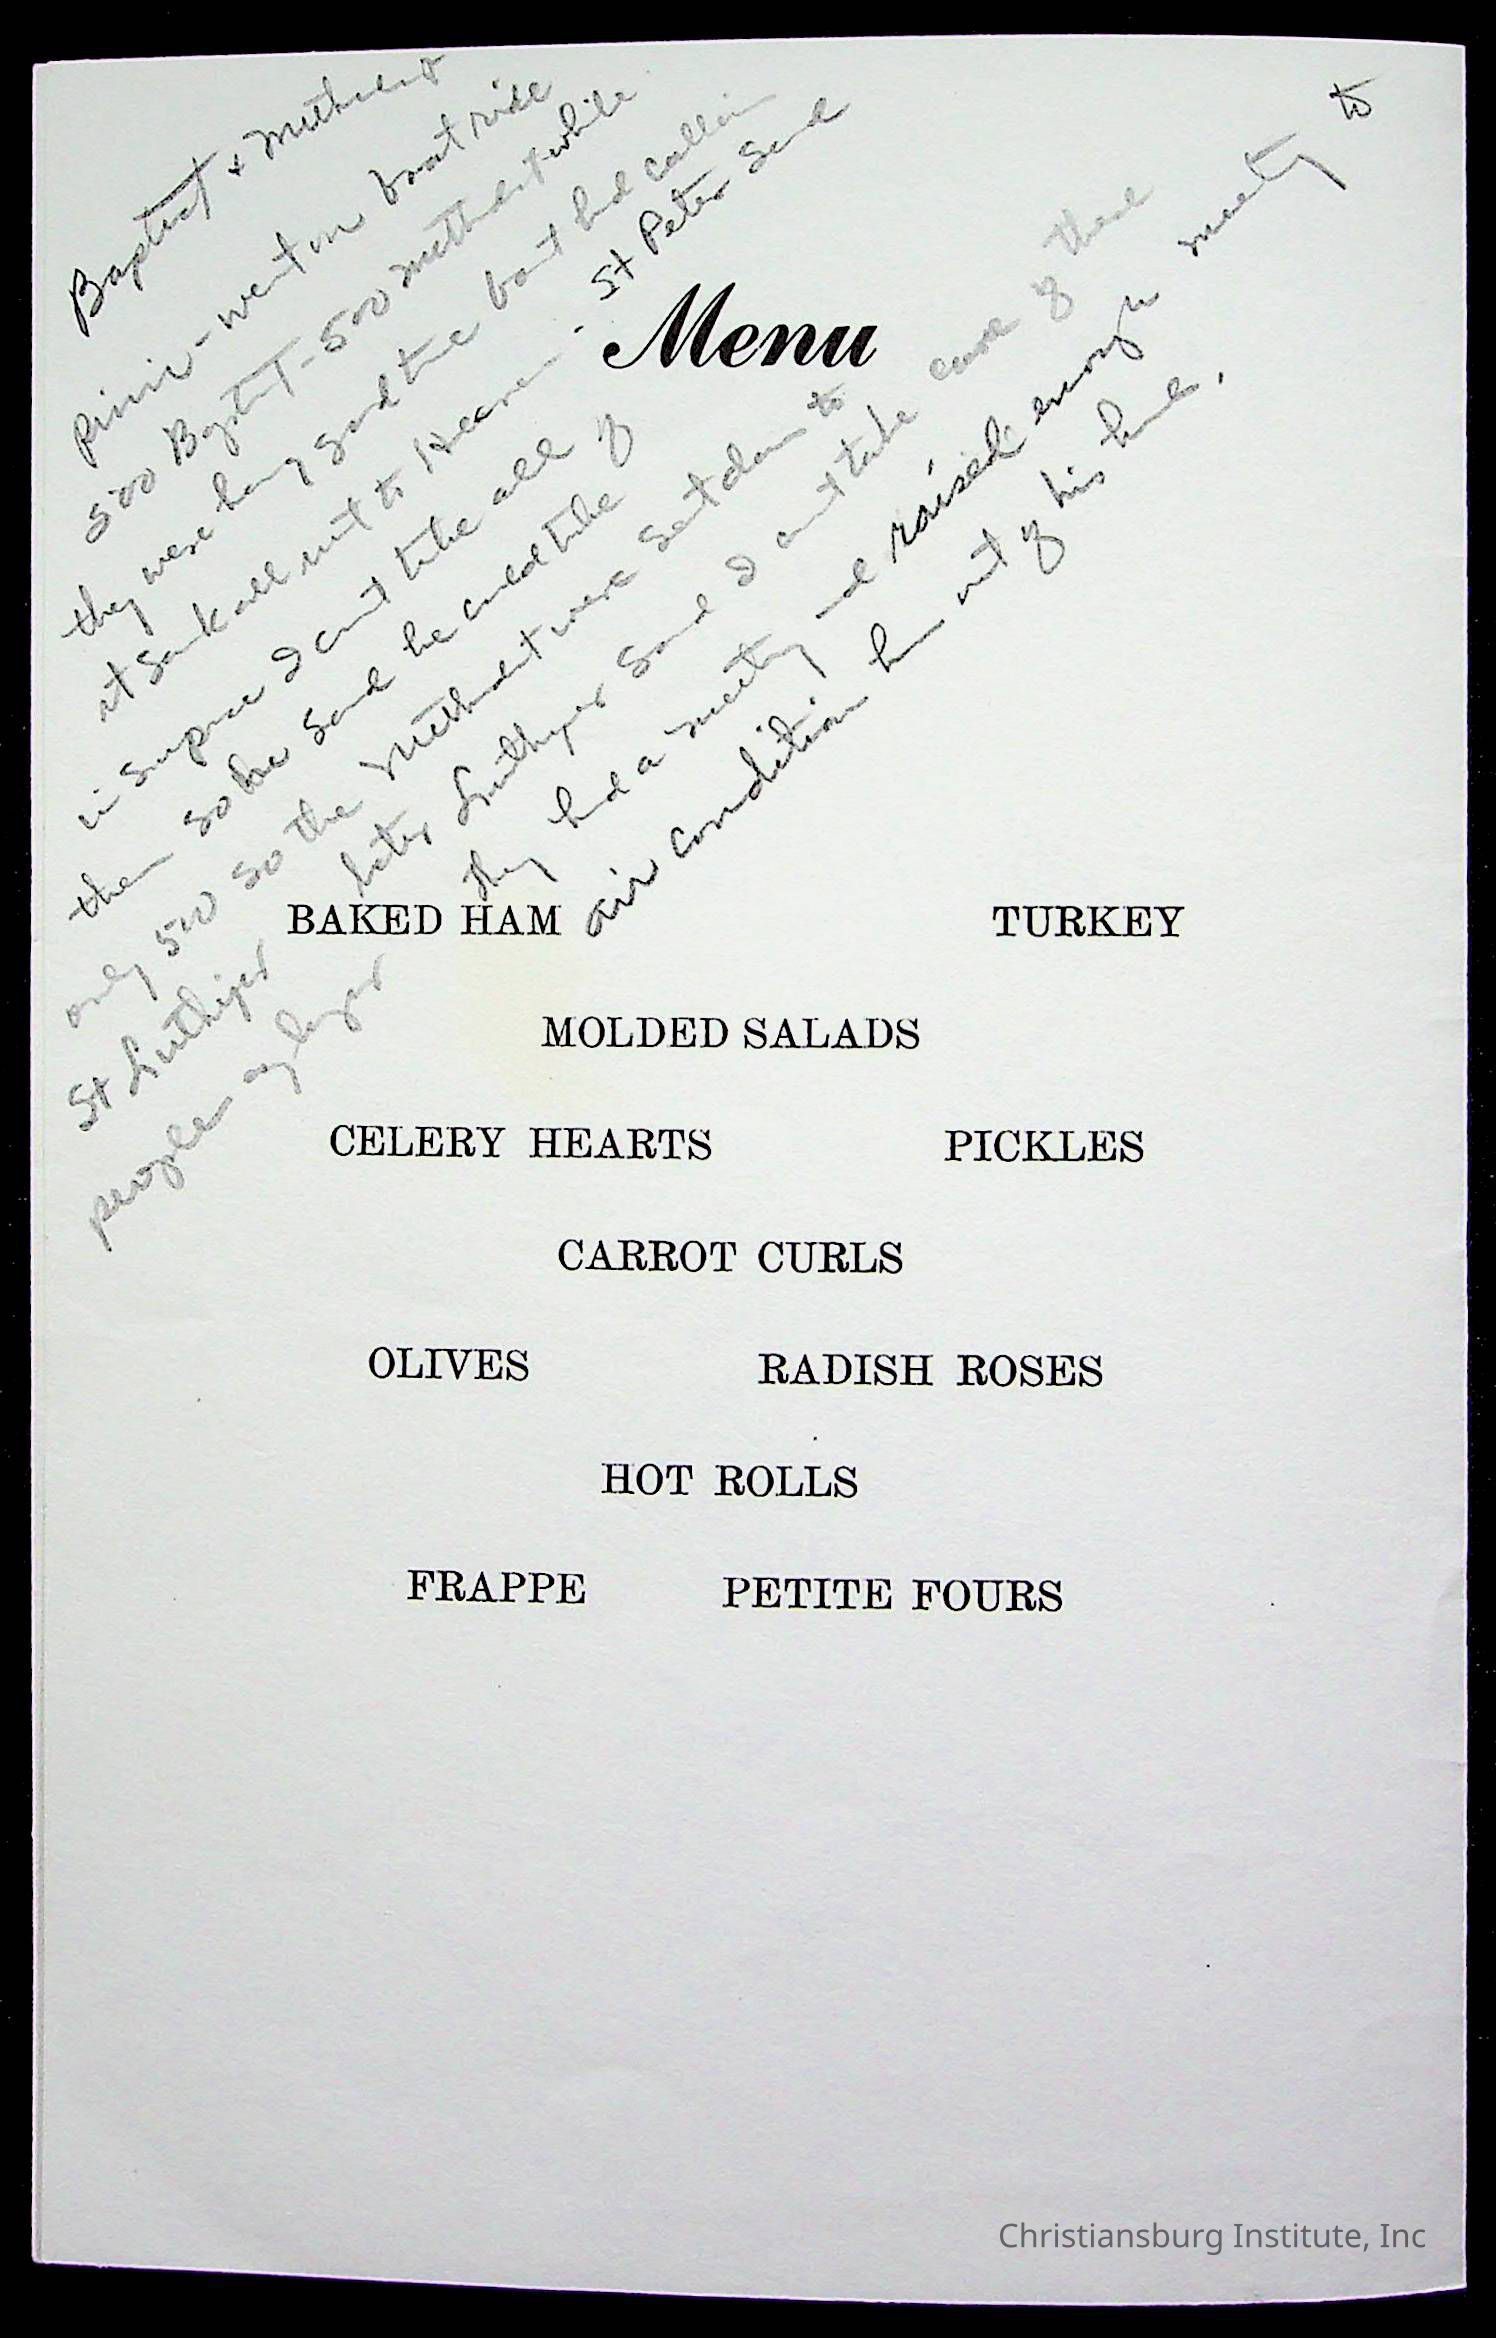 Baptist + Methodist
Picnic - went on boat ride
500 Baptist - 500 Methodist + while
they were having good time boat had
it sank all went to Heaven - St Peter said
in suprise I can't take all of
them so he said he could take
only 500 so the Methodist were sent down to
St Luthiper later Luthiper said I can't take care of these
people any longer they had a meeting and raised enough meeting to
air condition him out of his home.
Menu
BAKED HAM TURKEY
MOLDED SALADS
CELERY HEARTS PICKLES
CARROT CURLS
OLIVES RADISH ROSES
HOT ROLLS
FRAPPE PETITE FOURS
Christiansburg Institute, Inc